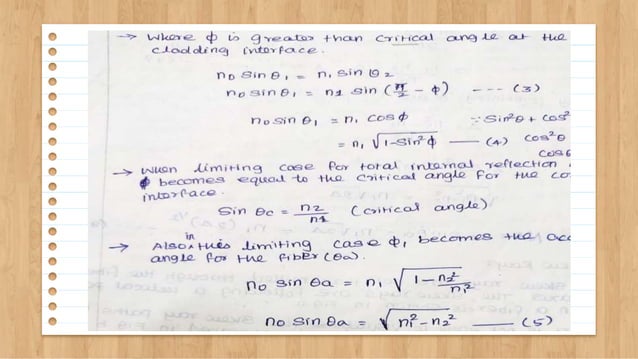 → Where ϕ is greater than critical angle at the
cladding interface.
n0 sin θ1 = n1 sin θ2
n0 sin θ1 = n1 sin (π/2 - ϕ) --- (3)
n0 sin θ1 = n1 cos ϕ ∵ Sin²θ + cos²
= n1 √1-sin²ϕ —— (4) cos²θ
cosθ
→ When limiting case for total internal reflection
ϕ becomes equal to the critical angle for the co
interface.
Sin θc = n2/n1 (critical angle)
→ Also in this limiting case ϕ, becomes the acc
angle for the fiber (θa).
n0 sin θa = n1 √1 - n2²/n1²
n0 sin θa = √n1² - n2² —— (5)